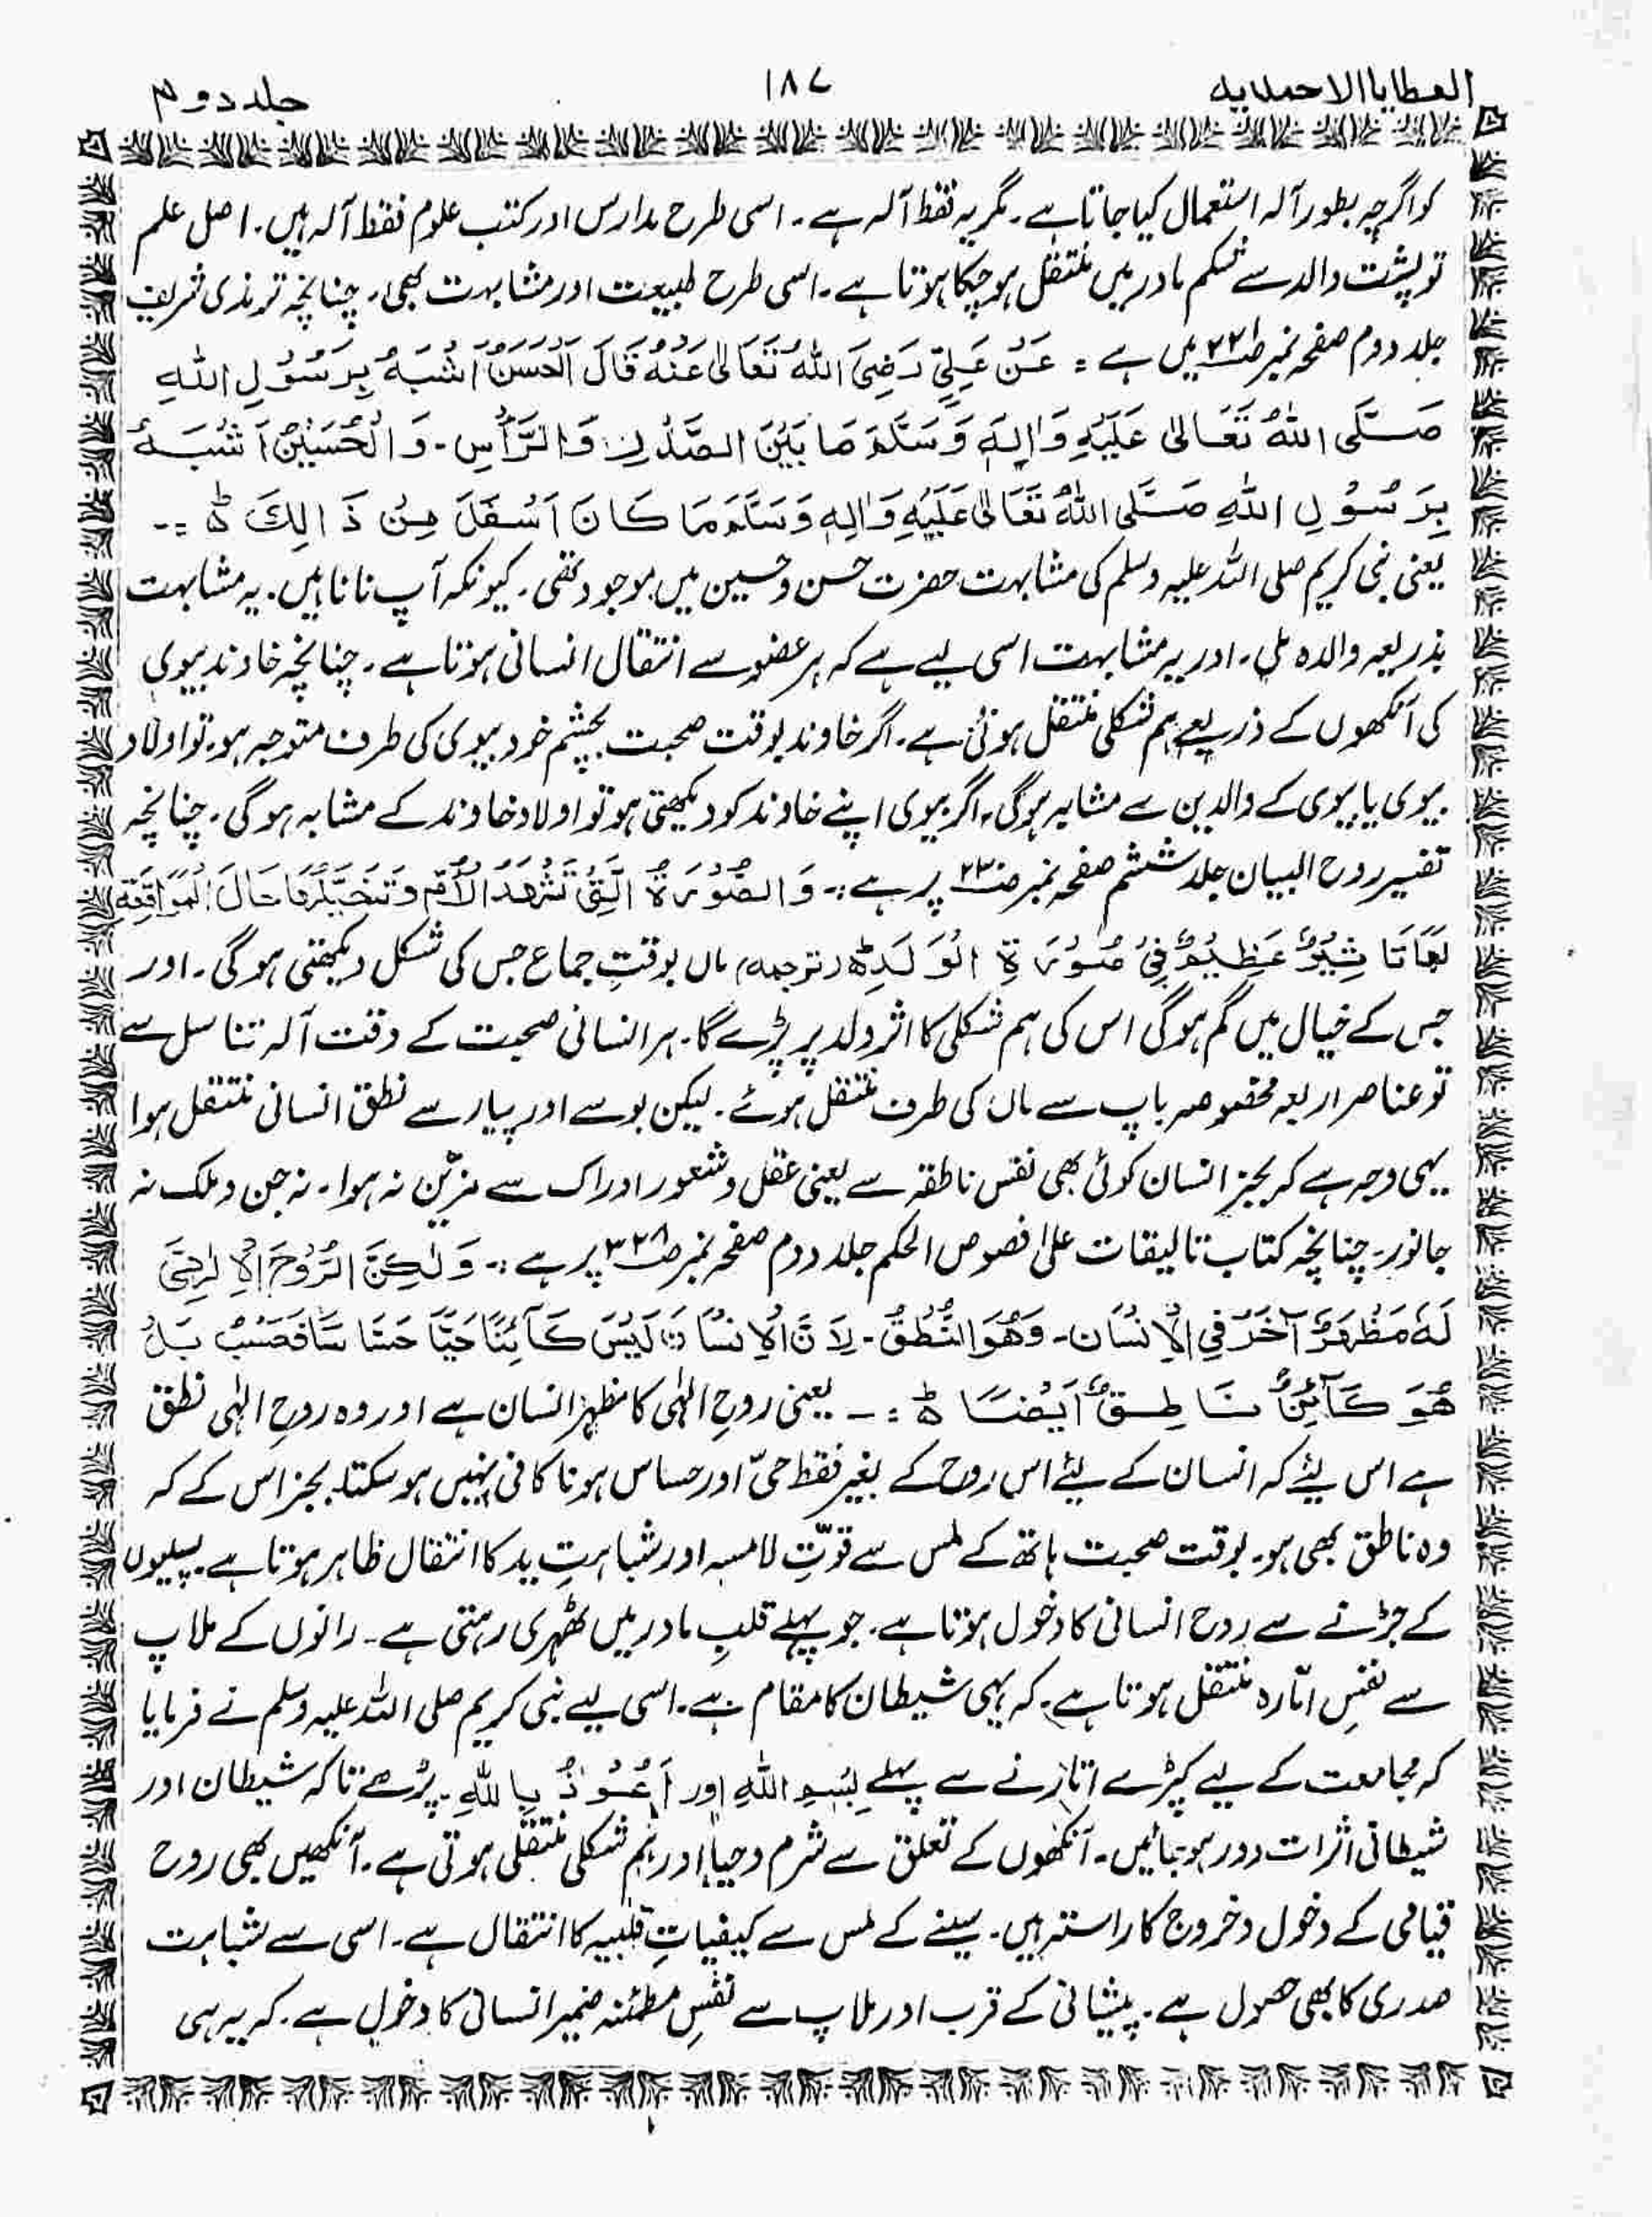 العطایا الاحمدیہ
۱۸۷
جلد دوم
کو اگرچہ بطور آلہ استعمال کیا جاتا ہے۔ مگر یہ فقط آلہ ہے۔ اسی طرح مدارس اور کتب علوم فقط آلہ ہیں۔ اصل علم
تو پشت والد سے شکم مادر میں منتقل ہو چکا ہوتا ہے۔ اسی طرح طبیعت اور مشابہت بھی، چنانچہ ترمذی شریف
جلد دوم صفحہ نمبر ص۲۲۱ میں ہے = عَنْ عَلِیٍّ رَضِیَ اللہُ تَعَالیٰ عَنْہُ قَالَ اَلْحَسَنُ اَشْبَہُ بِرَسُوْلِ اللہِ
صَلَّی اللہُ تَعَالیٰ عَلَیْہِ وَاٰلِہٖ وَسَلَّمَ مَا بَیْنَ الصَّدْرِ وَالرَّأْسِ۔ وَالْحُسَیْنُ اَشْبَہُ
بِرَسُوْلِ اللہِ صَلَّی اللہُ تَعَالیٰ عَلَیْہِ وَاٰلِہٖ وَسَلَّمَ مَا کَانَ اَسْفَلَ مِنْ ذَالِکَ ط =۔
یعنی نبی کریم صلی اللہ علیہ وسلم کی مشابہت حضرت حسن و حسین میں موجود تھی۔ کیونکہ آپ نانا ہیں۔ یہ مشابہت
بذریعہ والدہ ملی۔ اور یہ مشابہت اسی لیے ہے کہ ہر عضو سے انتقال انسانی ہوتا ہے۔ چنانچہ خاوند بیوی
کی آنکھوں کے ذریعے ہم شکلی منتقل ہوتی ہے۔ اگر خاوند بوقت صحبت بچشم خود بیوی کی طرف متوجہ ہو۔ تو اولاد
بیوی یا بیوی کے والدین سے مشابہ ہوگی، اگر بیوی اپنے خاوند کو دیکھتی ہو تو اولاد خاوند کے مشابہ ہوگی۔ چنانچہ
تفسیر روح البیان جلد ششم صفحہ نمبر ص۲۳ پر ہے :۔ وَالصُّوْرَۃُ الَّتِیْ تَشْهَدُ الْاُمُّ وَتَتَخَیَّلُهَا حَالَ الْمُوَاقَعَةِ
لَهَا تَاثِیْرٌ عَظِیْمٌ فِیْ صُوْرَۃِ الْوَلَدِ ط (ترجمہ) ماں بوقتِ جماع جس کی شکل دیکھتی ہوگی۔ اور
جس کے خیال میں گم ہوگی اس کی ہم شکلی کا اثر ولد پر پڑے گا۔ ہر انسانی صحبت کے وقت آلہ تناسل سے
تو عناصر اربعہ مخصوصہ باپ سے ماں کی طرف منتقل ہوئے۔ لیکن بوسے اور پیار سے نطق انسانی منتقل ہوا
یہی وجہ ہے کہ بجز انسان کوئی بھی نفس ناطقہ سے یعنی عقل و شعور ادراک سے مزیّن نہ ہوا۔ نہ جن و ملک نہ
جانور۔ چنانچہ کتاب تالیقات علیٰ فصوص الحکم جلد دوم صفحہ نمبر ص۳۲۸ پر ہے :۔ وَلٰکِنَّ الرُّوْحَ الْاِلٰہِیَّ
لَہٗ مَظْهَرٌ آخَرُ فِی الْاِنْسَان۔ وَهُوَ النُّطْقُ۔ لِاَنَّ الْاِنْسَانَ لَیْسَ کَآئِنًا حَیًّا حَسَّاسًا فَحَسْبُ بَلْ
هُوَ کَآئِنٌ نَاطِقٌ اَیْضًا ط =۔ یعنی روحِ الٰہی کا مظہر انسان ہے اور وہ روحِ الٰہی نطق
ہے اس لیئے کہ انسان کے لیئے اس روح کے بغیر فقط حیّ اور حساس ہونا کافی نہیں ہو سکتا۔ بجز اس کے کہ
وہ ناطق بھی ہو۔ بوقت صحبت ہاتھ کے لمس سے قوّتِ لامسہ اور شباہتِ ید کا انتقال ظاہر ہوتا ہے۔ پسلیوں
کے جڑنے سے روح انسانی کا دخول ہوتا ہے۔ جو پہلے قلبِ مادر میں ٹھہری رہتی ہے۔ رانوں کے ملاپ
سے نفسِ امّارہ منتقل ہوتا ہے۔ کہ یہی شیطان کا مقام ہے۔ اسی لیے نبی کریم صلی اللہ علیہ وسلم نے فرمایا
کہ مجامعت کے لیے کپڑے اتارنے سے پہلے بِسْمِ اللہِ اور اَعُوْذُ بِاللہِ۔ پڑھے تاکہ شیطان اور
شیطانی اثرات دور ہو جائیں۔ آنکھوں کے تعلق سے شرم و حیا اور ہم شکلی منتقلی ہوتی ہے۔ آنکھیں بھی روح
قیامی کے دخول و خروج کا راستہ ہیں۔ سینے کے لمس سے کیفیاتِ قلبیہ کا انتقال ہے۔ اسی سے شباہت
صدری کا بھی حصول ہے۔ پیشانی کے قرب اور ملاپ سے نفسِ مطمئنہ ضمیر انسانی کا دخول ہے۔ کہ یہ ہی